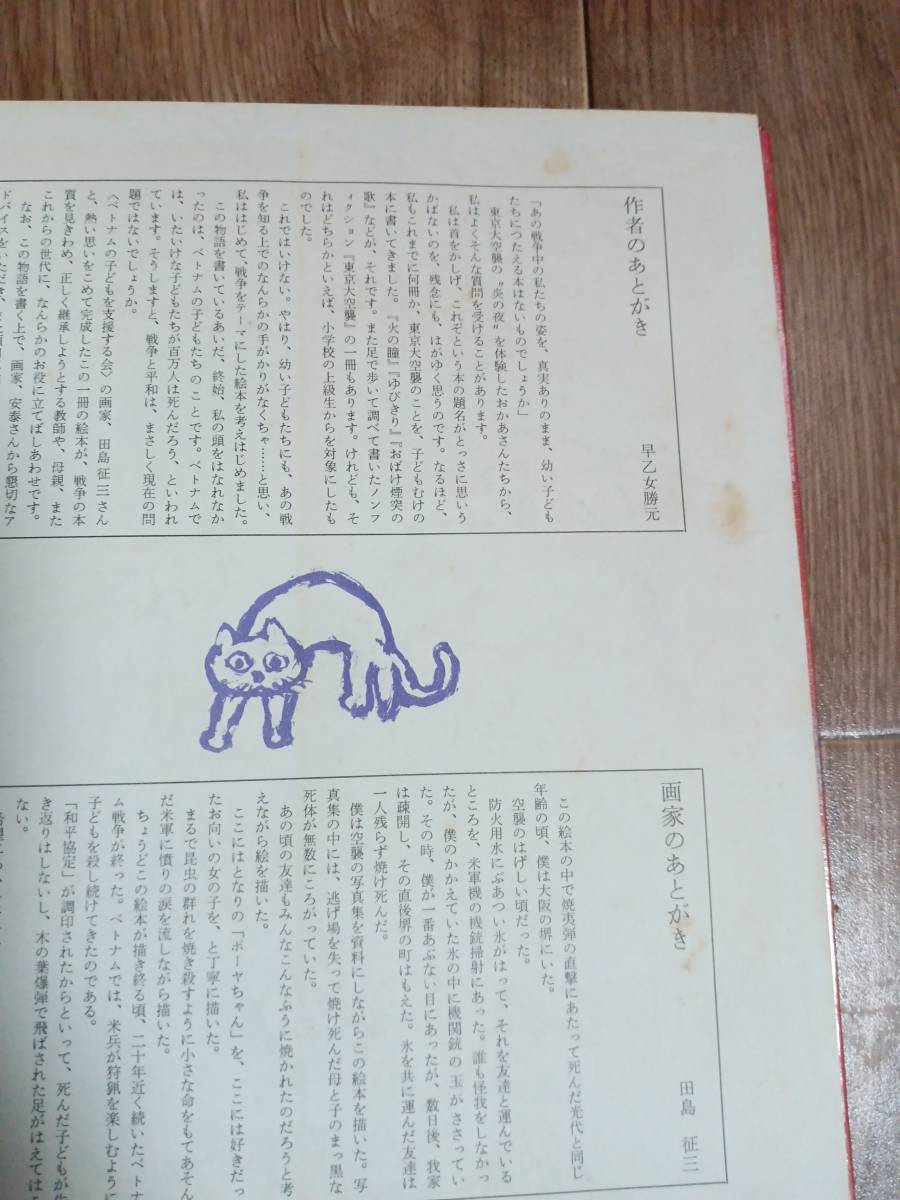 作者のあとがき
早乙女勝元
「あの戦争中の私たちの姿を、真実ありのまま、幼い子ども
たちにつたえる本はないものでしょうか」
東京大空襲の〝炎の夜〟を体験したおかあさんたちから、
私はよくそんな質問を受けることがあります。
私は首をかしげ、これぞという本の題名がとっさに思いう
かばないのを、残念にも、はがゆく思うのです。なるほど、
私もこれまでに何冊か、東京大空襲のことを、子どもむけの
本に書いてきました。『火の瞳』『ゆびきり』『おばけ煙突の
歌』などが、それです。また足で歩いて調べて書いたノンフ
ィクション『東京大空襲』の一冊もあります。けれども、そ
れはどちらかといえば、小学校の上級生からを対象にしたも
のでした。
これではいけない。やはり、幼い子どもたちにも、あの戦
争を知る上でのなんらかの手がかりがなくちゃ……と思い、
私ははじめて、戦争をテーマにした絵本を考えはじめました。
この物語を書いているあいだ、終始、私の頭をはなれなか
ったのは、ベトナムの子どもたちのことです。ベトナムで
は、いたいけな子どもたちが百万人は死んだだろう、といわれ
ています。そうしますと、戦争と平和は、まさしく現在の問
題ではないでしょうか。
〈ベトナムの子どもを支援する会〉の画家、田島征三さん
と、熱い思いをこめて完成したこの一冊の絵本が、戦争の本
質を見きわめ、正しく継承しようとする教師や、母親、また
これからの世代に、なんらかのお役に立てばしあわせです。
なお、この物語を書く上で、画家、安泰さんから懇切なア
ドバイスをいただき
画家のあとがき
田島 征三
この絵本の中で焼夷弾の直撃にあたって死んだ光代と同じ
年齢の頃、僕は大阪の堺にいた。
空襲のはげしい頃だった。
防火用水にぶあつい氷がはって、それを友達と運んでいる
ところを、米軍機の機銃掃射にあった。誰も怪我をしなかっ
たが、僕のかかえていた氷の中に機関銃の玉がささってい
た。その時、僕が一番あぶない目にあったが、数日後、我家
は疎開し、その直後堺の町はもえた。氷を共に運んだ友達は
一人残らず焼け死んだ。
僕は空襲の写真集を資料にしながらこの絵本を描いた。写
真集の中には、逃げ場を失って焼け死んだ母と子のまっ黒な
死体が無数にころがっていた。
あの頃の友達もみんなこんなふうに焼かれたのだろうと考
えながら絵を描いた。
ここにはとなりの「ボーヤちゃん」を、ここには好きだっ
たお向いの女の子を、と丁寧に描いた。
まるで昆虫の群れを焼き殺すように小さな命をもてあそん
だ米軍に憤りの涙を流しながら描いた。
ちょうどこの絵本が描き終る頃、二十年近く続いたベトナ
ム戦争が終った。ベトナムでは、米兵が狩猟を楽しむように
子どもを殺し続けてきたのである。
「和平協定」が調印されたからといって、死んだ子どもが生
き返りはしないし、木の葉爆弾で飛ばされた足がはえては
ない。